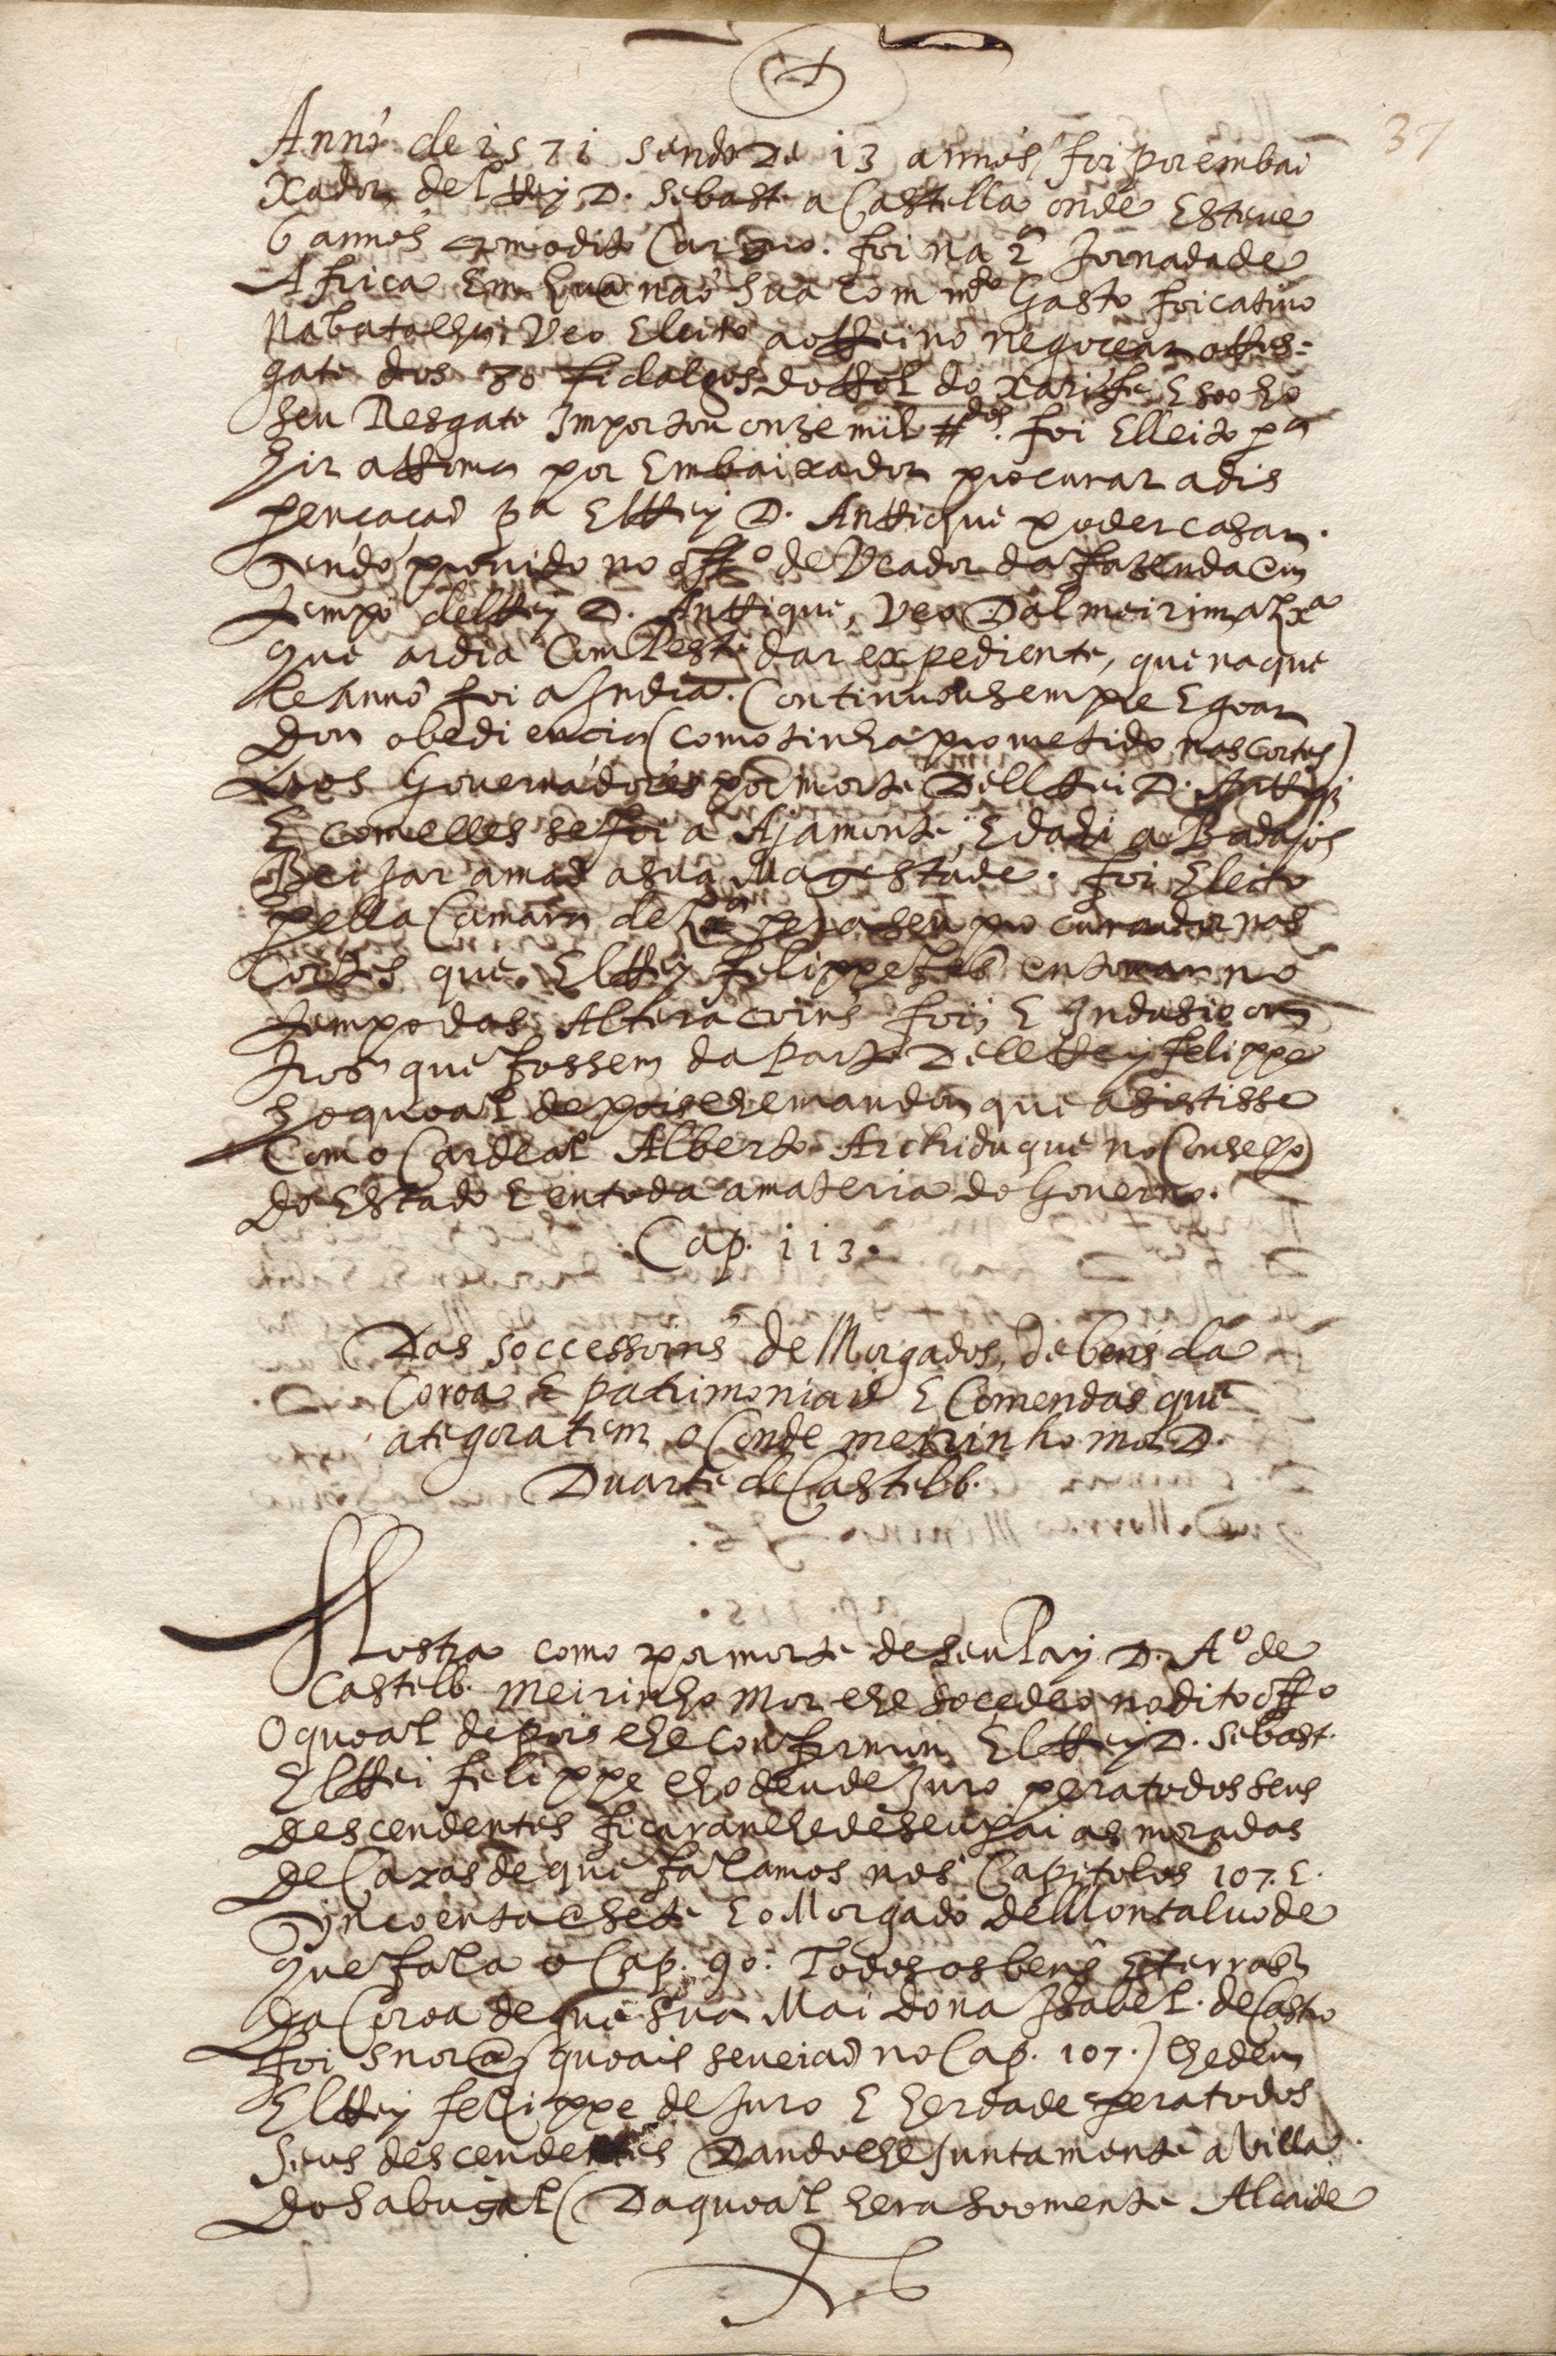 37
Anno de 1571 sendo de 13 annos, foi por embai
xador del Rey D. Sebast. a Castella onde Esteve
6 annos com o dito Cargo. foi na 2ª Jornada de
Africa Em hua nao sua com mto Gasto foi cativo
Na batalha, Veo Eleito ao Reino negocear o Res=
gate dos 80 fidalgos do Rol do Xarife E soo ho
seu Resgate Importou onze mil #dos. foi Elleito pa
hir a Roma por Embaixador procurar a dis
pençação pa ElRey D. Anrrique poder casar.
Sendo provido no offo de Veador da fazenda Em
tempo delRey D. Anrrique, Veo Dalmeirim a Lxa
que ardia Com Peste dar expediente, que naque
le Anno foi a India. Continuou sempre E goar
dou obediencia (como tinha prometido nas Cortes)
Aos Governadores por morte DellRei D. Anrriq
E com elles se foi a Ajamonte, E dahi a Badajos
Beijar a mão a sua Magestade. foi Eleito
pella Camara de Lxa pera seu procurador nas
Cortes que ElRey felippe fes en tomar no
tempo das Alteracoins foi, E Indusio ou
tros que fossem da parte DellRey felippe
ho quoal depois lhe mandou que asistisse
Com o Cardeal Alberto Archiduque no Conselho
do Estado E en toda a materia do Governo.
Cap. 113.
Das soccessoins de Morgados, de bens da
Coroa E patrimoniais E Comendas que
ategora tem o Conde meirinho mor D.
Duarte de Castelb.
Mostra como por morte de seu Pay D. Ao de
Castelb. Meirinho Mor lhe socedeo no dito offo
O quoal depois lhe confirmou ElRey D. Sebast.
ElRei felippe lho deu de Juro pera todos seus
descendentes ficarão lhe de seu pai as moradas
de Cazas de que falamos nos Capitolos 107. E.
Sincoenta e sete E o Morgado de Montalvo de
que fala o Cap. 90. Todos os bens E terras
da Coroa de que sua Mai dona Isabel de Castro
foi Snora (quoais se veião no Cap. 107.) lhe deu
ElRey felippe de Juro E herdade pera todos
seus descendentes Dandolhe Juntamente a Villa
do Sabugal (Da quoal hera soomente Alcaide